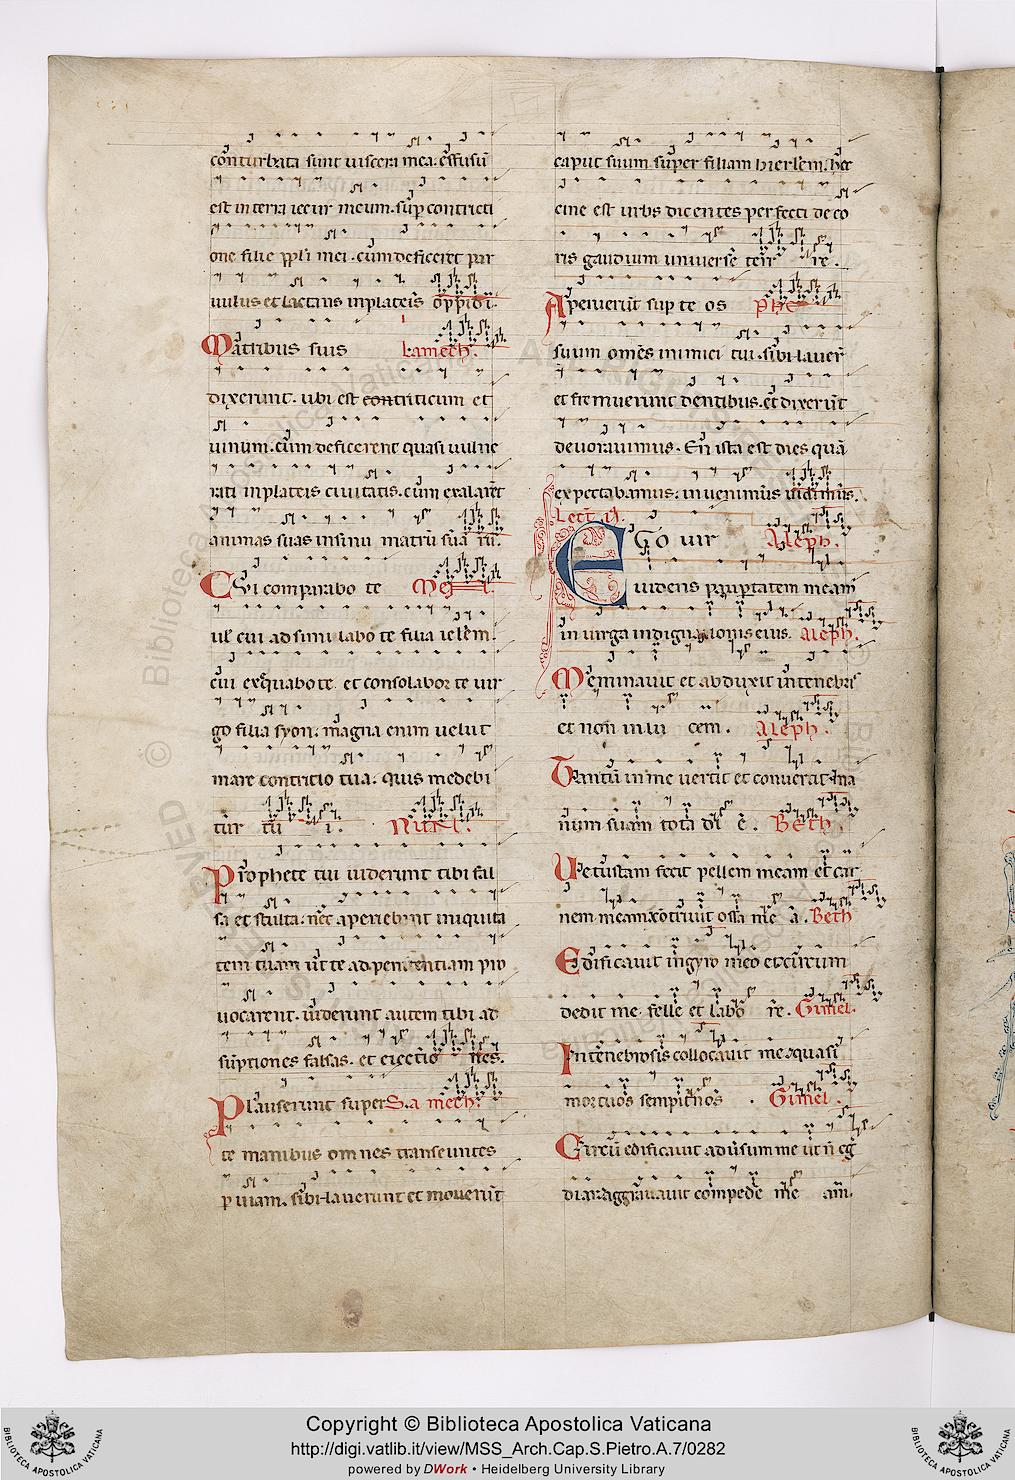 conturbata sunt uiscera mea. effusū
est in terra iecur meum. sup contriti
one filie ppli mei. cum deficeret par
uulus et lactens in plateis oppidi.
Matribus suis Lamech.
dixerunt. ubi est con triticum et
uinum. cum deficerent quasi uulne
rati in plateis ciuitatis. cum exalarēt
animas suas in sinu matrū suarū.
Cui comparabo te Mem.
ul cui adsimilabo te filia ierlem.
cui exequabo te et consolabor te uir
go filia syon. magna enim uelut
mare contritio tua. quis medebi
tur tui. Nun.
Prophete tui uiderunt tibi fal
sa et stulta. nec aperiebant iniquita
tem tuam ut te ad penitentiam pro
uocarent. uiderunt autem tibi ad
sumptiones falsas. et eiectiones.
Plauserunt super Samech.
te manibus omnes transeuntes
p uiam. sibilauerunt et mouerūt
caput suum super filiam hierlem. hec
cine est urbs dicentes perfecti deco
ris gaudium uniuerse terre.
Aperuerūt sup te os Phe
suum omēs inimici tui. sibilauer
et fremuerunt dentibus. et dixerūt
deuorauimus. En ista est dies quā
expectabamus: inuenimus uidimus.
Lect. ii.
Ego uir Aleph.
uidens paupertatem meam
in uirga indignationis eius. Aleph.
Me minauit et adduxit in tenebris
et non in lucem. Aleph.
Tantū in me uertit et conuertit ma
num suam tota die. Beth.
Uetustam fecit pellem meam et car
nem meam contriuit ossa mea. Beth
Edificauit in gyro meo et circum
dedit me felle et labore. Gimel.
In tenebrosis collocauit me quasi
mortuos sempiternos. Gimel.
Circū edificauit aduersum me ut n̄ eg
diar aggrauauit compedē meam.
Copyright © Biblioteca Apostolica Vaticana
http://digi.vatlib.it/view/MSS_Arch.Cap.S.Pietro.A.7/0282
powered by DWork • Heidelberg University Library
BIBLIOTECA APOSTOLICA VATICANA
BIBLIOTECA APOSTOLICA VATICANA